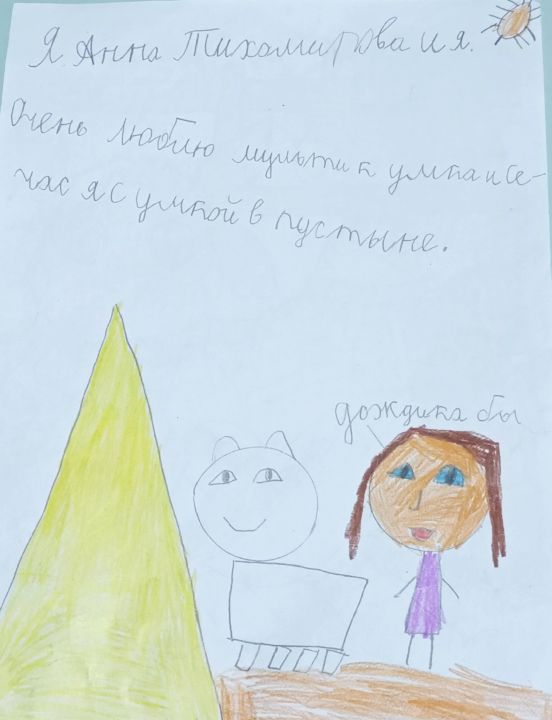 Я Анна Тихомирова и я.
Очень люблю мультик умка и се-
час я с умкой в пустыне.
дождика бы